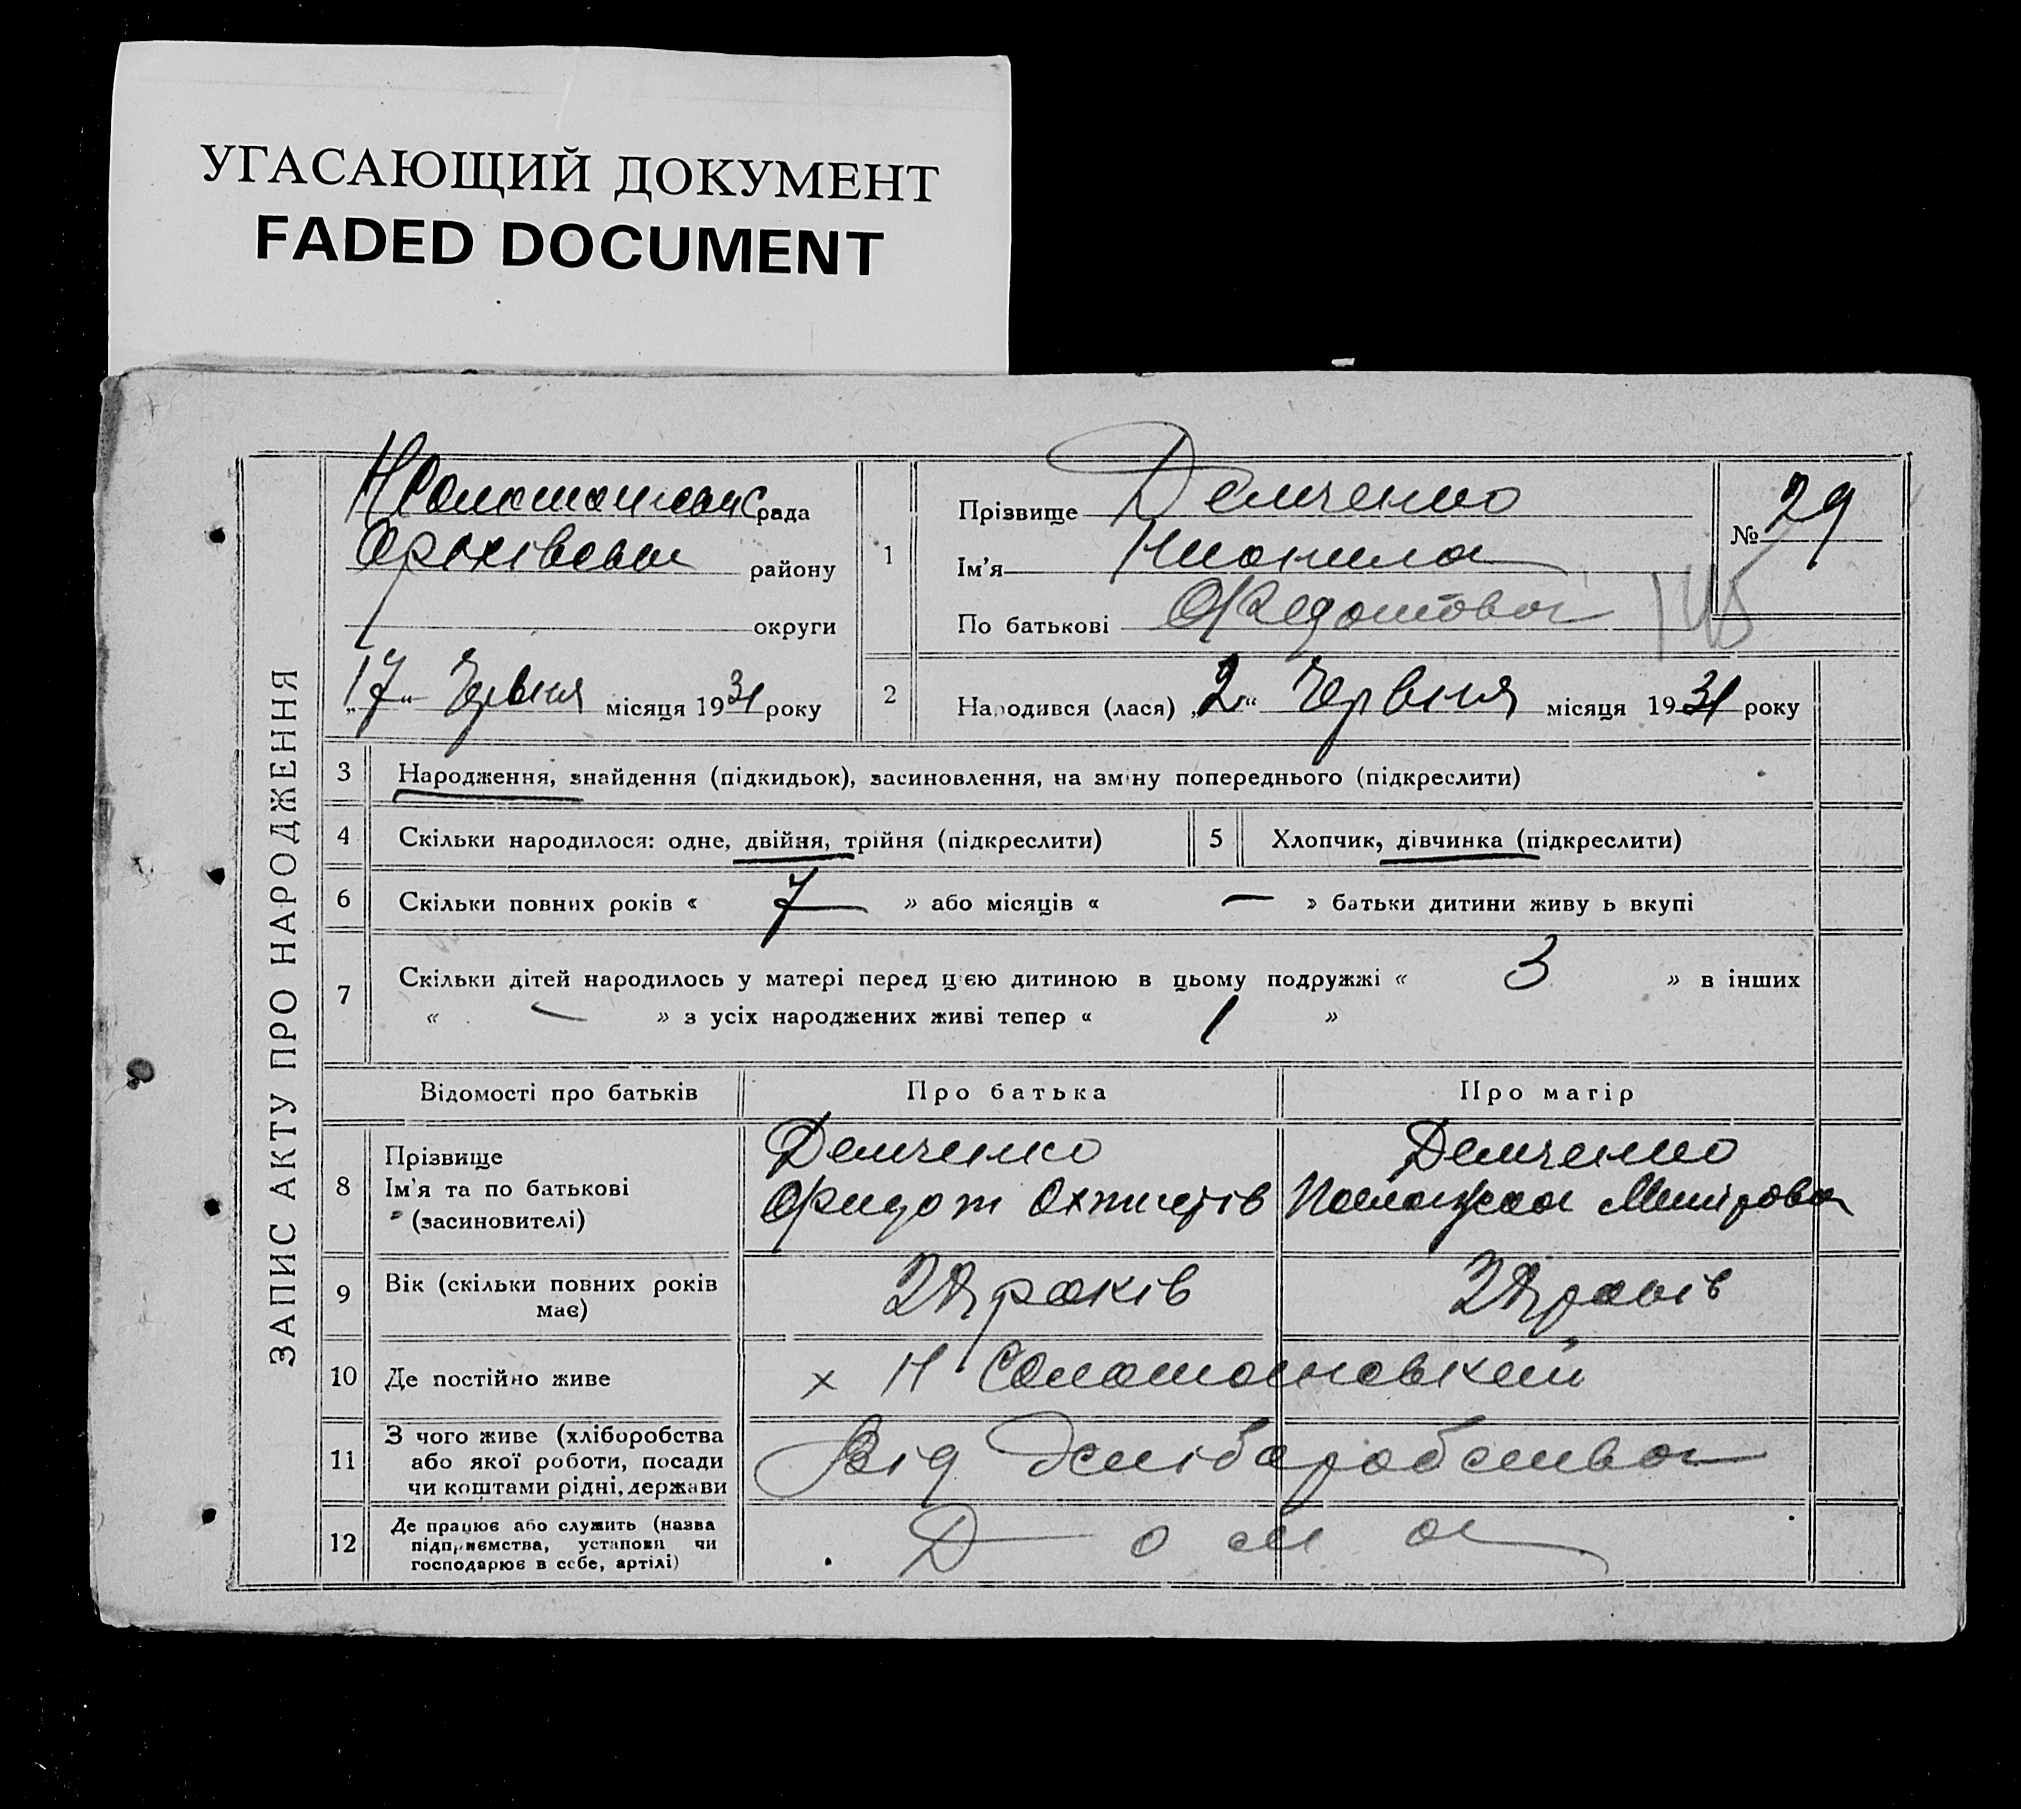 УГАСАЮЩИЙ ДОКУМЕНТ
FADED DOCUMENT
ЗАПИС АКТУ ПРО НАРОДЖЕННЯ
рада
району
округи
„17“ Червня місяця 1931 року
1
Прізвище Демченко
Ім'я
По батькові Федотова
№ 29
2
Народився (лася) „2“ Червня місяця 1931 року
3 Народження, знайдення (підкидьок), засиновлення, на зміну попереднього (підкреслити)
4 Скільки народилося: одне, двійня, трійня (підкреслити)
5 Хлопчик, дівчинка (підкреслити)
6 Скільки повних років « 7 » або місяців « — » батьки дитини живу ь вкупі
7 Скільки дітей народилось у матері перед цією дитиною в цьому подружжі « 3 » в інших
« — » з усіх народжених живі тепер « 1 »
Відомості про батьків Про батька Про матір
8 Прізвище Демченко Демченко
Ім'я та по батькові
(засиновителі)
9 Вік (скільки повних років має) років років
10 Де постійно живе х Н Соломоновский
11 З чого живе (хліборобства або якої роботи, посади чи коштами рідні, держави Від Хліборобства
12 Де працює або служить (назва підприємства, установи чи господарює в себе, артілі) Дома